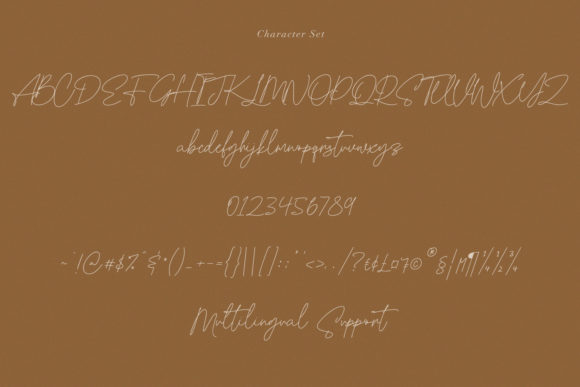 Character Set
ABCDEFGHIJKLMNOPQRSTUVWXYZ
abcdefghijklmnopqrstuvwxyz
0123456789
~`!@#$%^&*()_+-={}||[]::"'<>,./?¢$£¤¥©®§¦M¶¼½¾
Multilingual Support